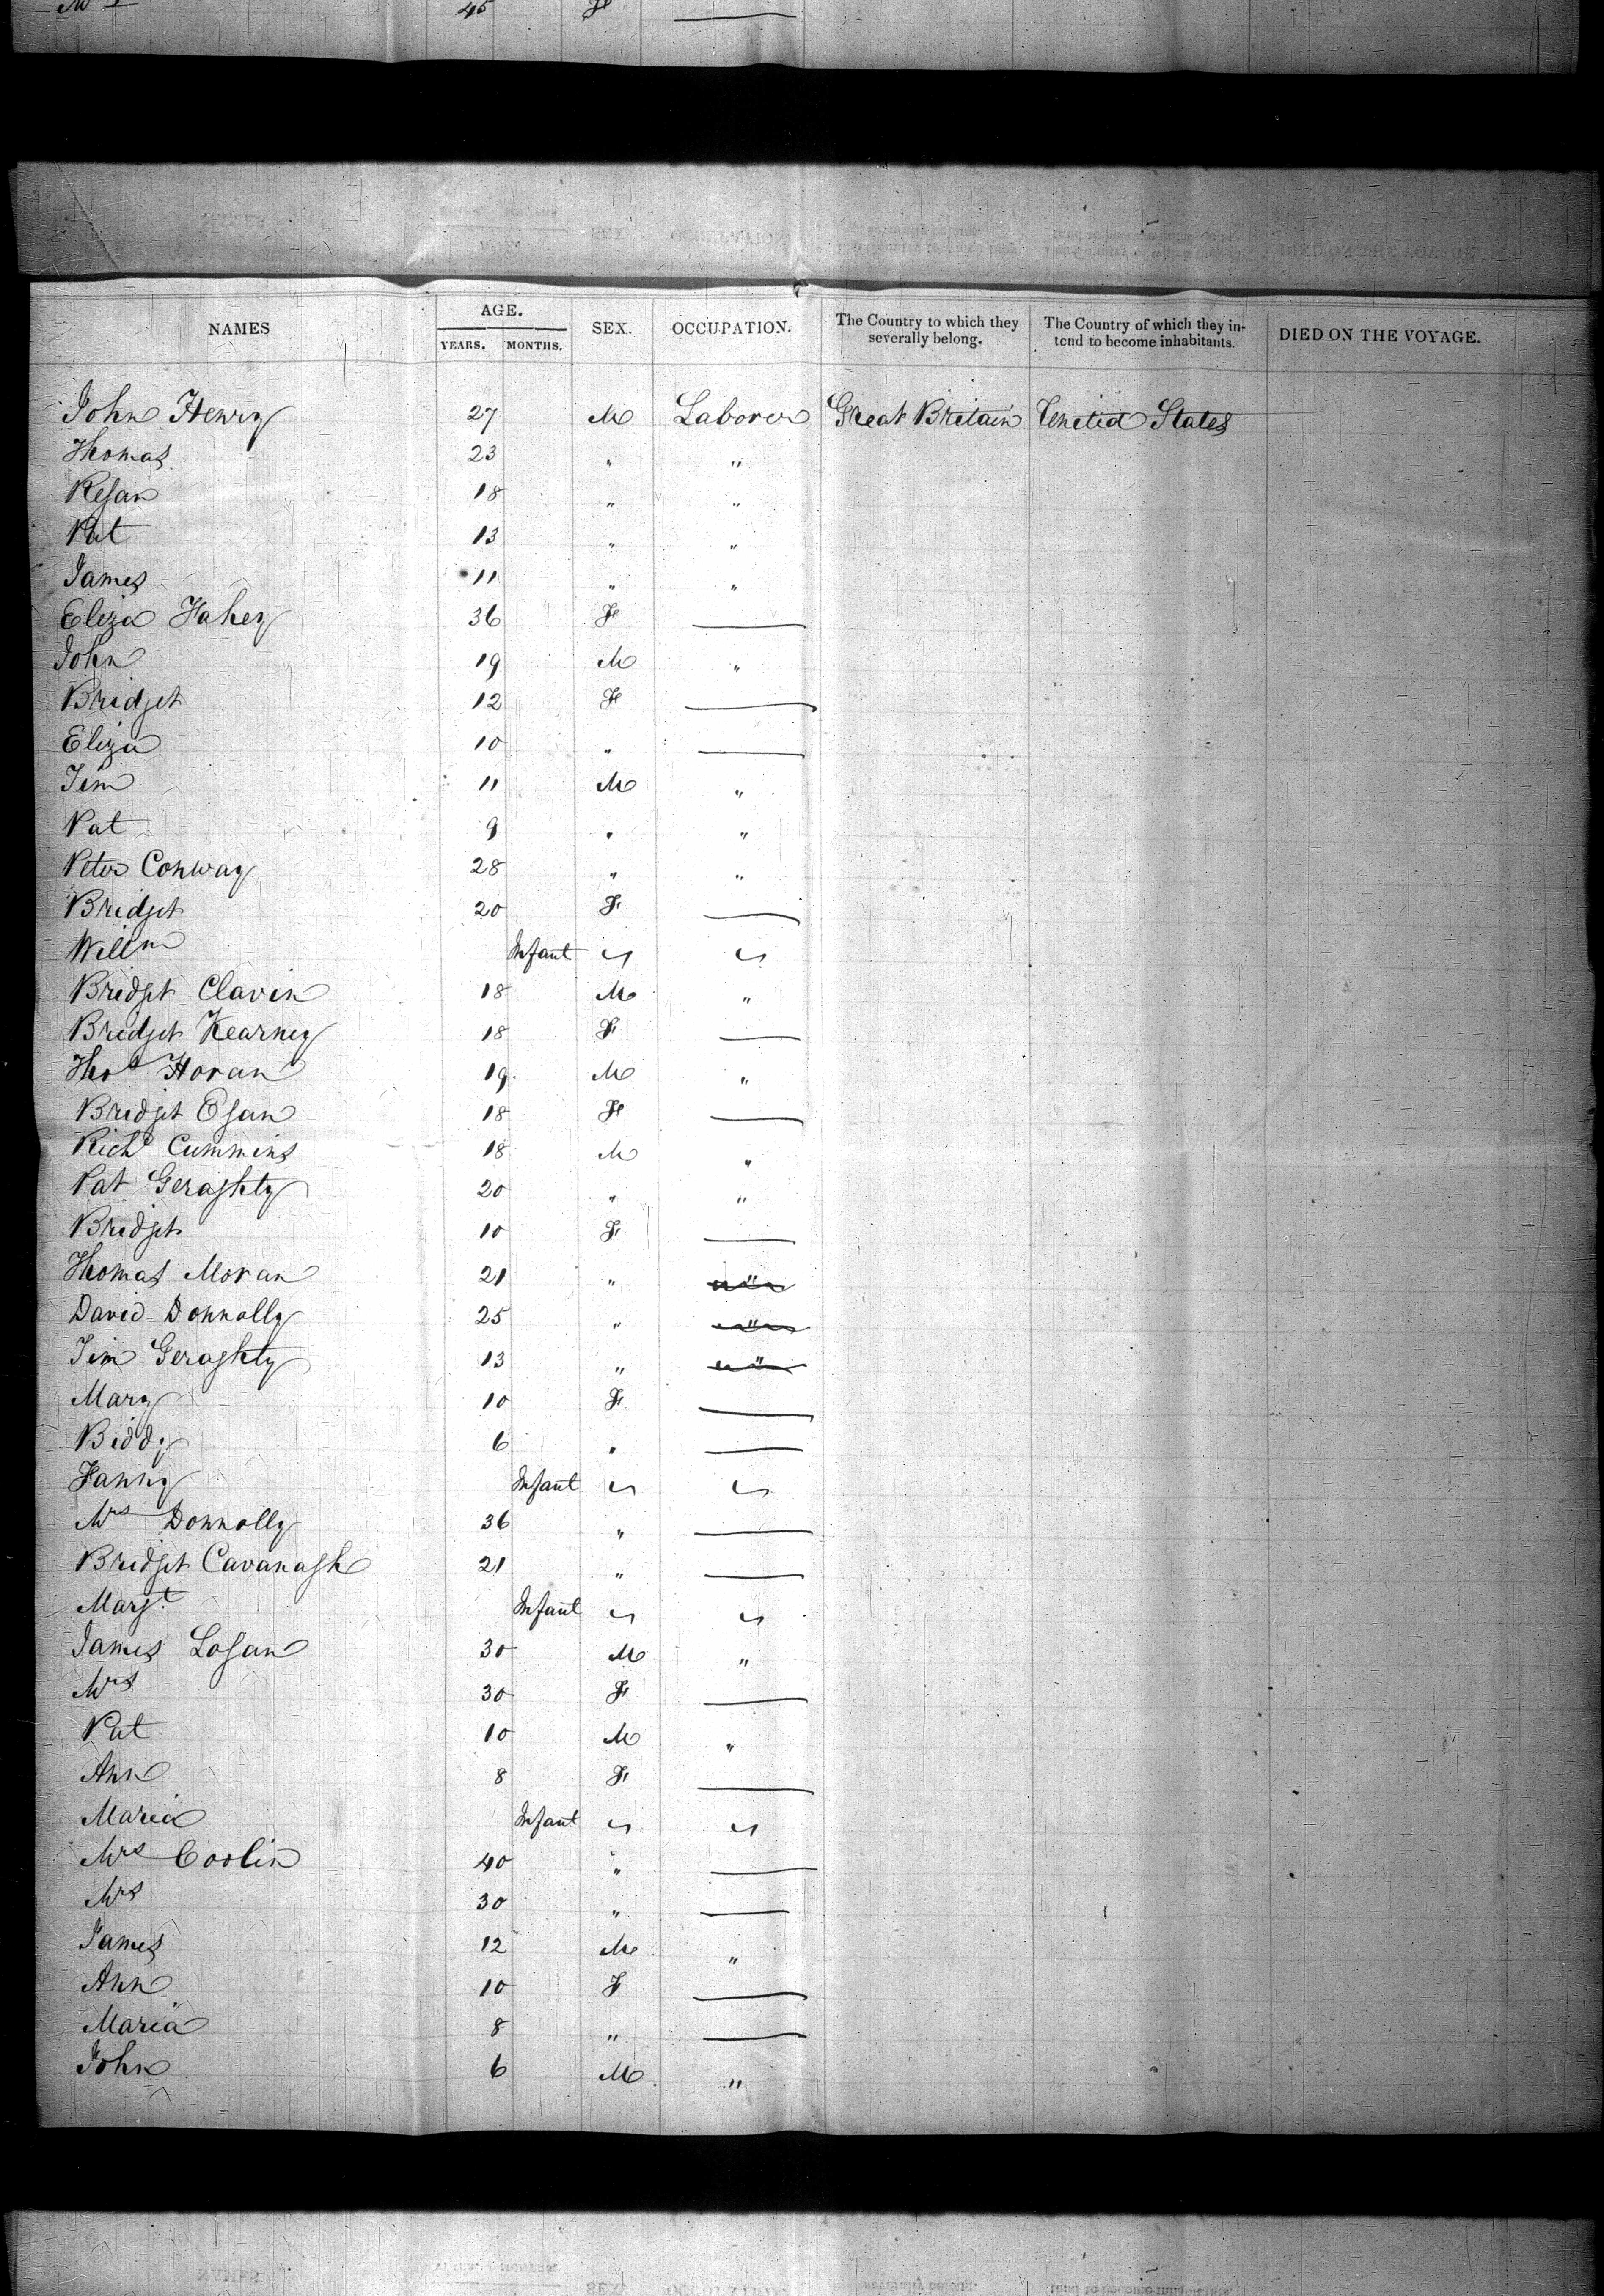 45 F
NAMES AGE. YEARS. MONTHS. SEX. OCCUPATION. The Country to which they severally belong. The Country of which they intend to become inhabitants. DIED ON THE VOYAGE.
John Henry 27 M Laborer Great Britain United States
Thomas 23 " "
18 " "
Pat 13 " "
James 11 " "
Eliza Fahey 36 F —
John 19 M "
Bridget 12 F —
Eliza 10 " —
Jim 11 M "
Pat 9 " "
Peter Conway 28 " "
Bridget 20 F —
Willm Infant " "
Bridget Clavin 18 M "
Bridget Kearney 18 F —
Thos Horan 19 M "
Bridget Egan 18 F —
Richd Cummins 18 M "
Pat Geraghty 20 " "
Bridget 10 F —
Thomas Moran 21 " "
David Donnolly 25 " "
Jim Geraghty 13 " "
Mary 10 F —
Biddy 6 " —
Fanny Infant " "
Mrs Donnolly 36 " —
Bridget Cavanagh 21 " —
Margt Infant " "
James Logan 30 M "
Mrs 30 F —
Pat 10 M "
Ann 8 F —
Maria Infant " "
Mrs Coolin 40 " —
Mrs 30 " —
James 12 M "
Ann 10 F —
Maria 8 " —
John 6 M "